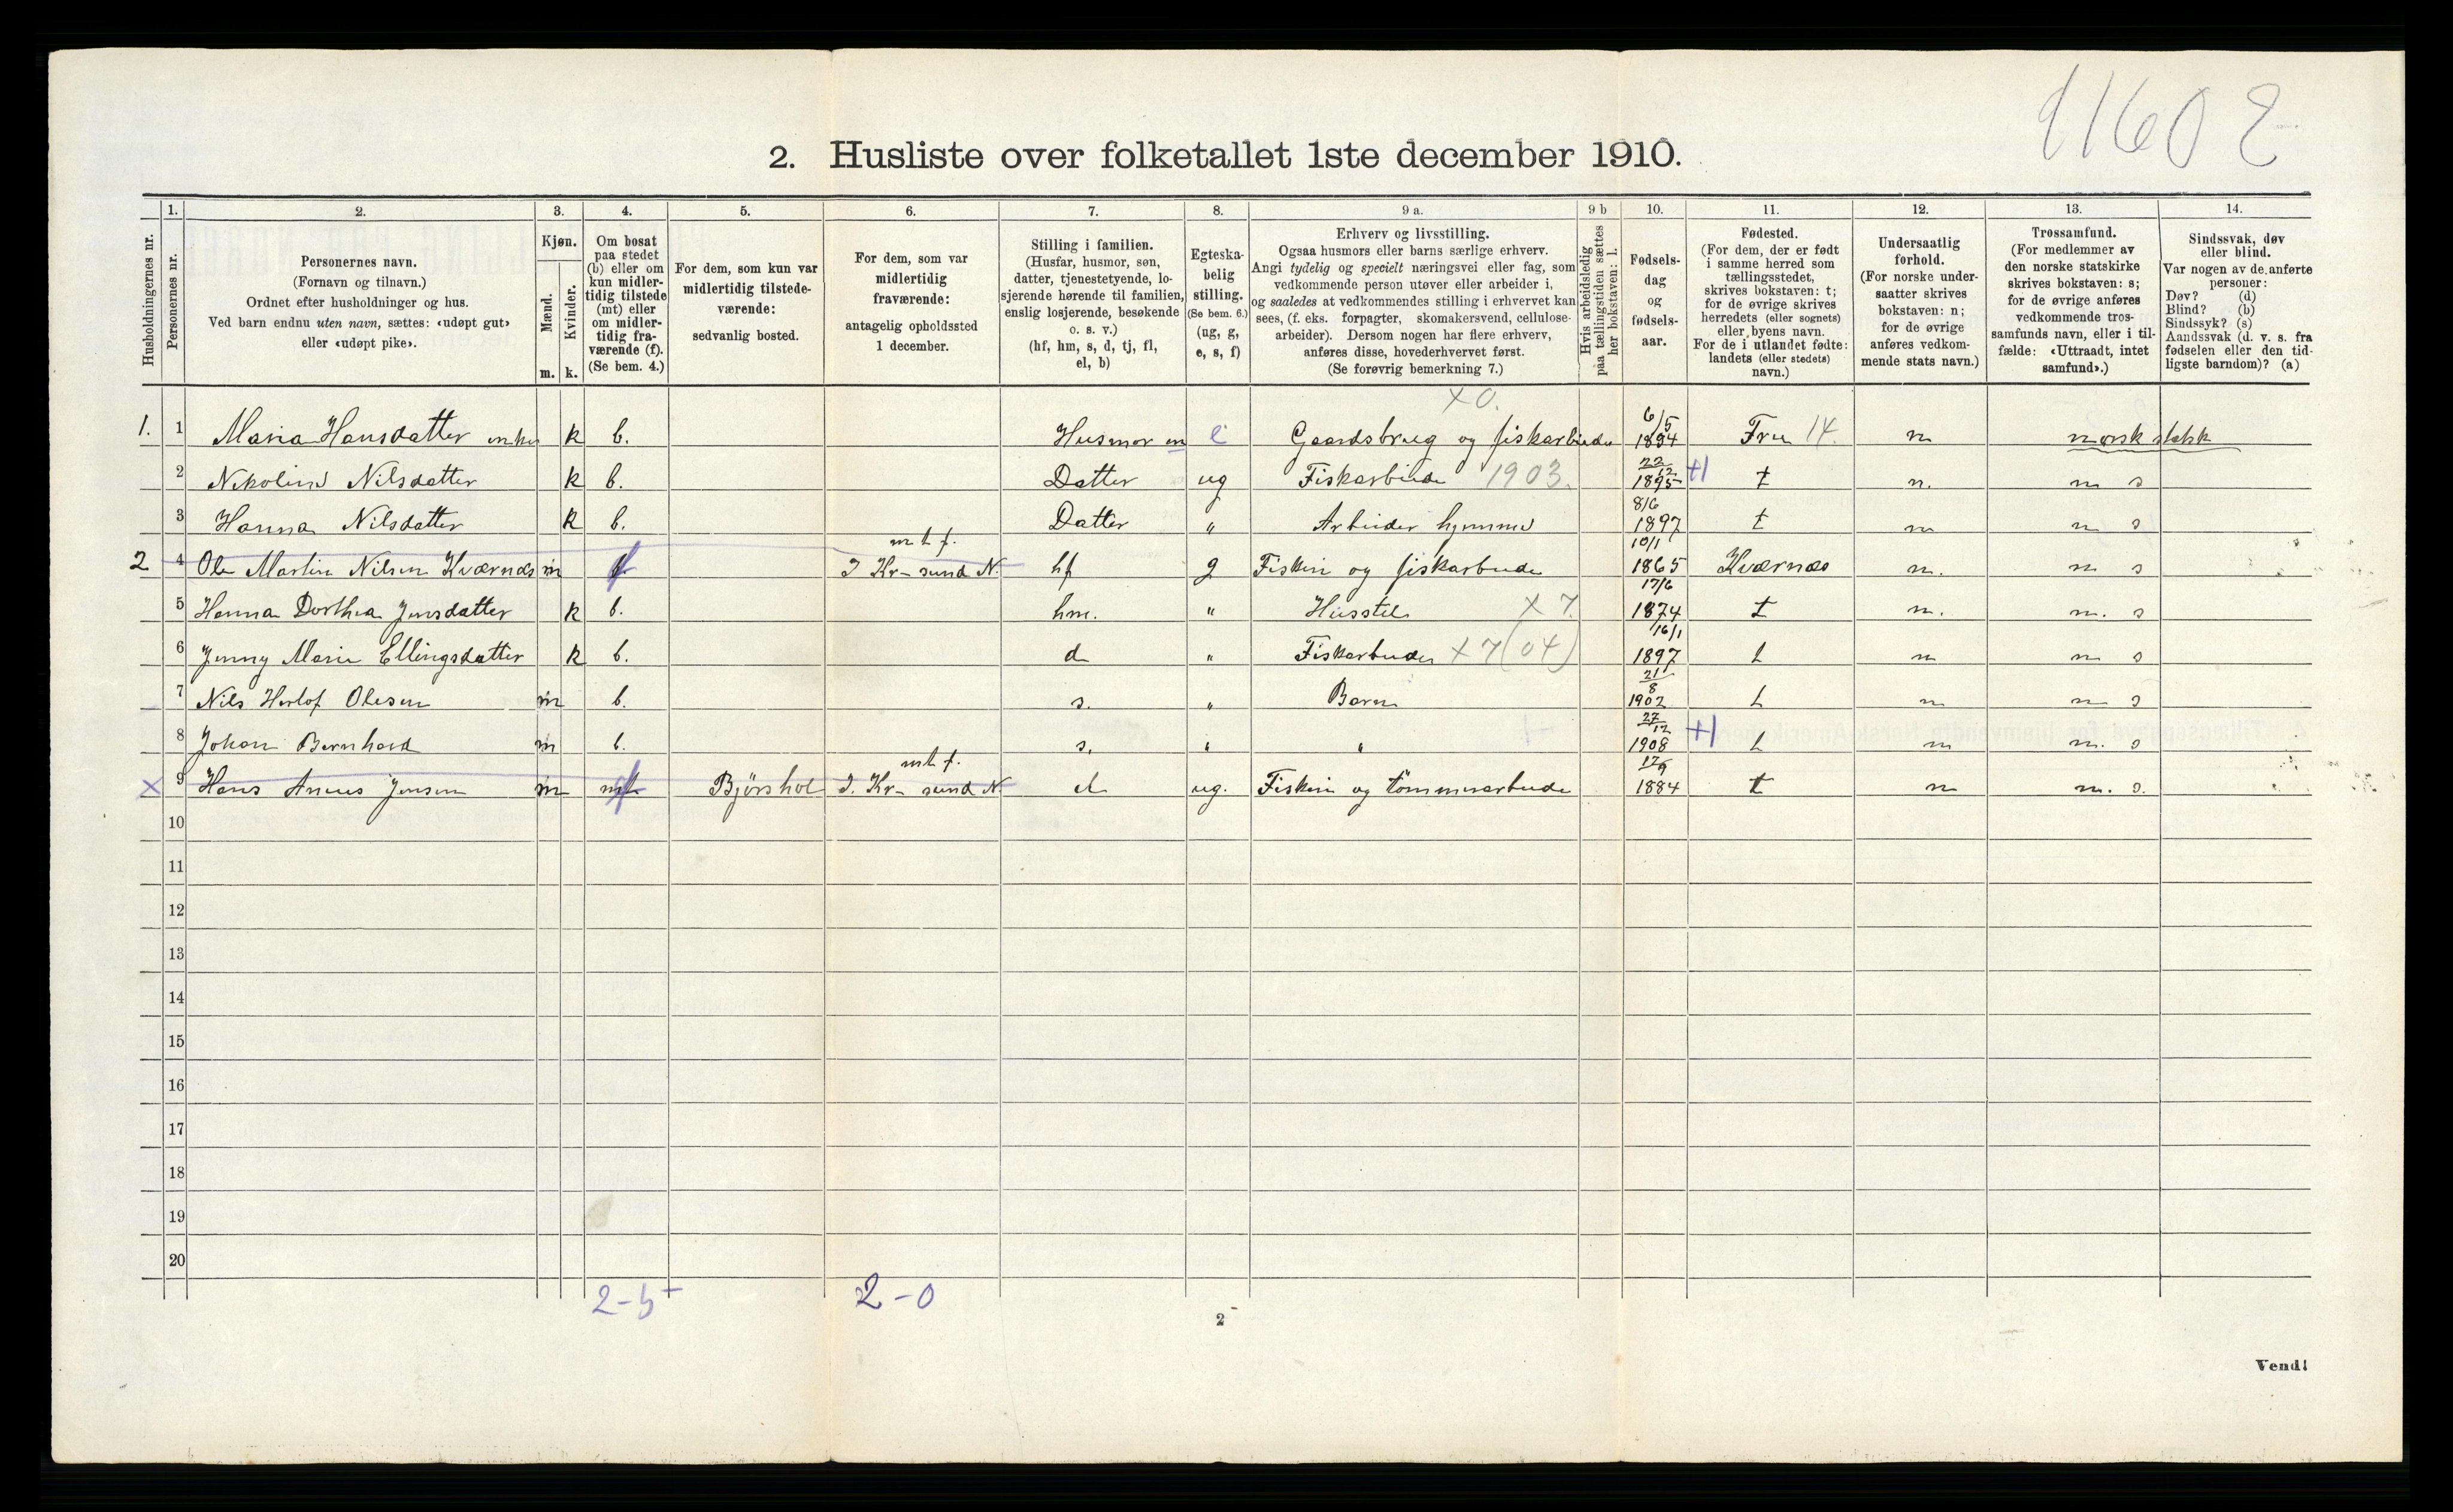 11602
2. Husliste over folketallet 1ste december 1910.
Husholdningernes nr.
1. Personernes nr.
2. Personernes navn.
(Fornavn og tilnavn.)
Ordnet efter husholdninger og hus.
Ved barn endnu uten navn, sættes: «udøpt gut»
eller «udøpt pike».
3. Kjøn.
Mænd. Kvinder.
m. k.
4. Om bosat
paa stedet
(b) eller om
kun midler-
tidig tilstede
(mt) eller
om midler-
tidig fra-
værende (f).
(Se bem. 4.)
5. For dem, som kun var
midlertidig tilstede-
værende:
sedvanlig bosted.
6. For dem, som var
midlertidig
fraværende:
antagelig opholdssted
1 december.
7. Stilling i familien.
(Husfar, husmor, søn,
datter, tjenestetyende, lo-
sjerende hørende til familien,
enslig losjerende, besøkende
o. s. v.)
(hf, hm, s, d, tj, fl,
el, b)
8. Egteska-
belig
stilling.
(Se bem. 6.)
(ug, g,
e, s, f)
9 a. Erhverv og livsstilling.
Ogsaa husmors eller barns særlige erhverv.
Angi tydelig og specielt næringsvei eller fag, som
vedkommende person utøver eller arbeider i,
og saaledes at vedkommendes stilling i erhvervet kan
sees, (f. eks. forpagter, skomakersvend, cellulose-
arbeider). Dersom nogen har flere erhverv,
anføres disse, hovederhvervet først.
(Se forøvrig bemerkning 7.)
9 b Hvis arbeidsledig
paa tællingstiden sættes
her bokstaven: l.
10. Fødsels-
dag
og
fødsels-
aar.
11. Fødested.
(For dem, der er født
i samme herred som
tællingsstedet,
skrives bokstaven: t;
for de øvrige skrives
herredets (eller sognets)
eller byens navn.
For de i utlandet fødte:
landets (eller stedets)
navn.)
12. Undersaatlig
forhold.
(For norske under-
saatter skrives
bokstaven: n;
for de øvrige
anføres vedkom-
mende stats navn.)
13. Trossamfund.
(For medlemmer av
den norske statskirke
skrives bokstaven: s;
for de øvrige anføres
vedkommende tros-
samfunds navn, eller i til-
fælde: «Uttraadt, intet
samfund».)
14. Sindssvak, døv
eller blind.
Var nogen av de anførte
personer:
Døv? (d)
Blind? (b)
Sindssyk? (s)
Aandssvak (d. v. s. fra
fødselen eller den tid-
ligste barndom)? (a)
x 0.
1. 1 Maria Hansdatter enke k b. Husmor e Gaardsbrug og fiskarbeider 6/5 18 4 14. n norsk statsk
2 Nikoline Nilsdatter k b. Datter ug Fiskarbeide 1903. 22/12 1895 +1 t n. n s
3 Hanna Nilsdatter k b. Datter " Arbeider hjemme 8/6 1897 t n n s
mt f.
2 4 Ole Martin Nilsen Kværnæs m f I Kr-sund N. hf g Fiskeri og fiskarbeide 10/1 1865 Kværnæs n. n s
5 Hanna Dorthea Jensdatter k b. hm. " Husstel x 7. 17/6 1874 t n. n. s
6 Jenny Marie Ellingsdatter k b. d " Fiskarbeider x 7 (04) 16/1 1897 t n n s
7 Nils Herlof Olesen m b. s. " Barn 21/8 1902 t n n s
8 Johan Bernhard m b. s. " " 27/12 1908 +1 t n n. s
mt f.
x 9 Hans Jensen m f Björshol I. Kr-sund N ug. Fiskeri og tömmerarbeide 17/9 1884 t n n. s.
10
11
12
13
14
15
16
17
18
19
20
2-5 2-0
2
Vend!